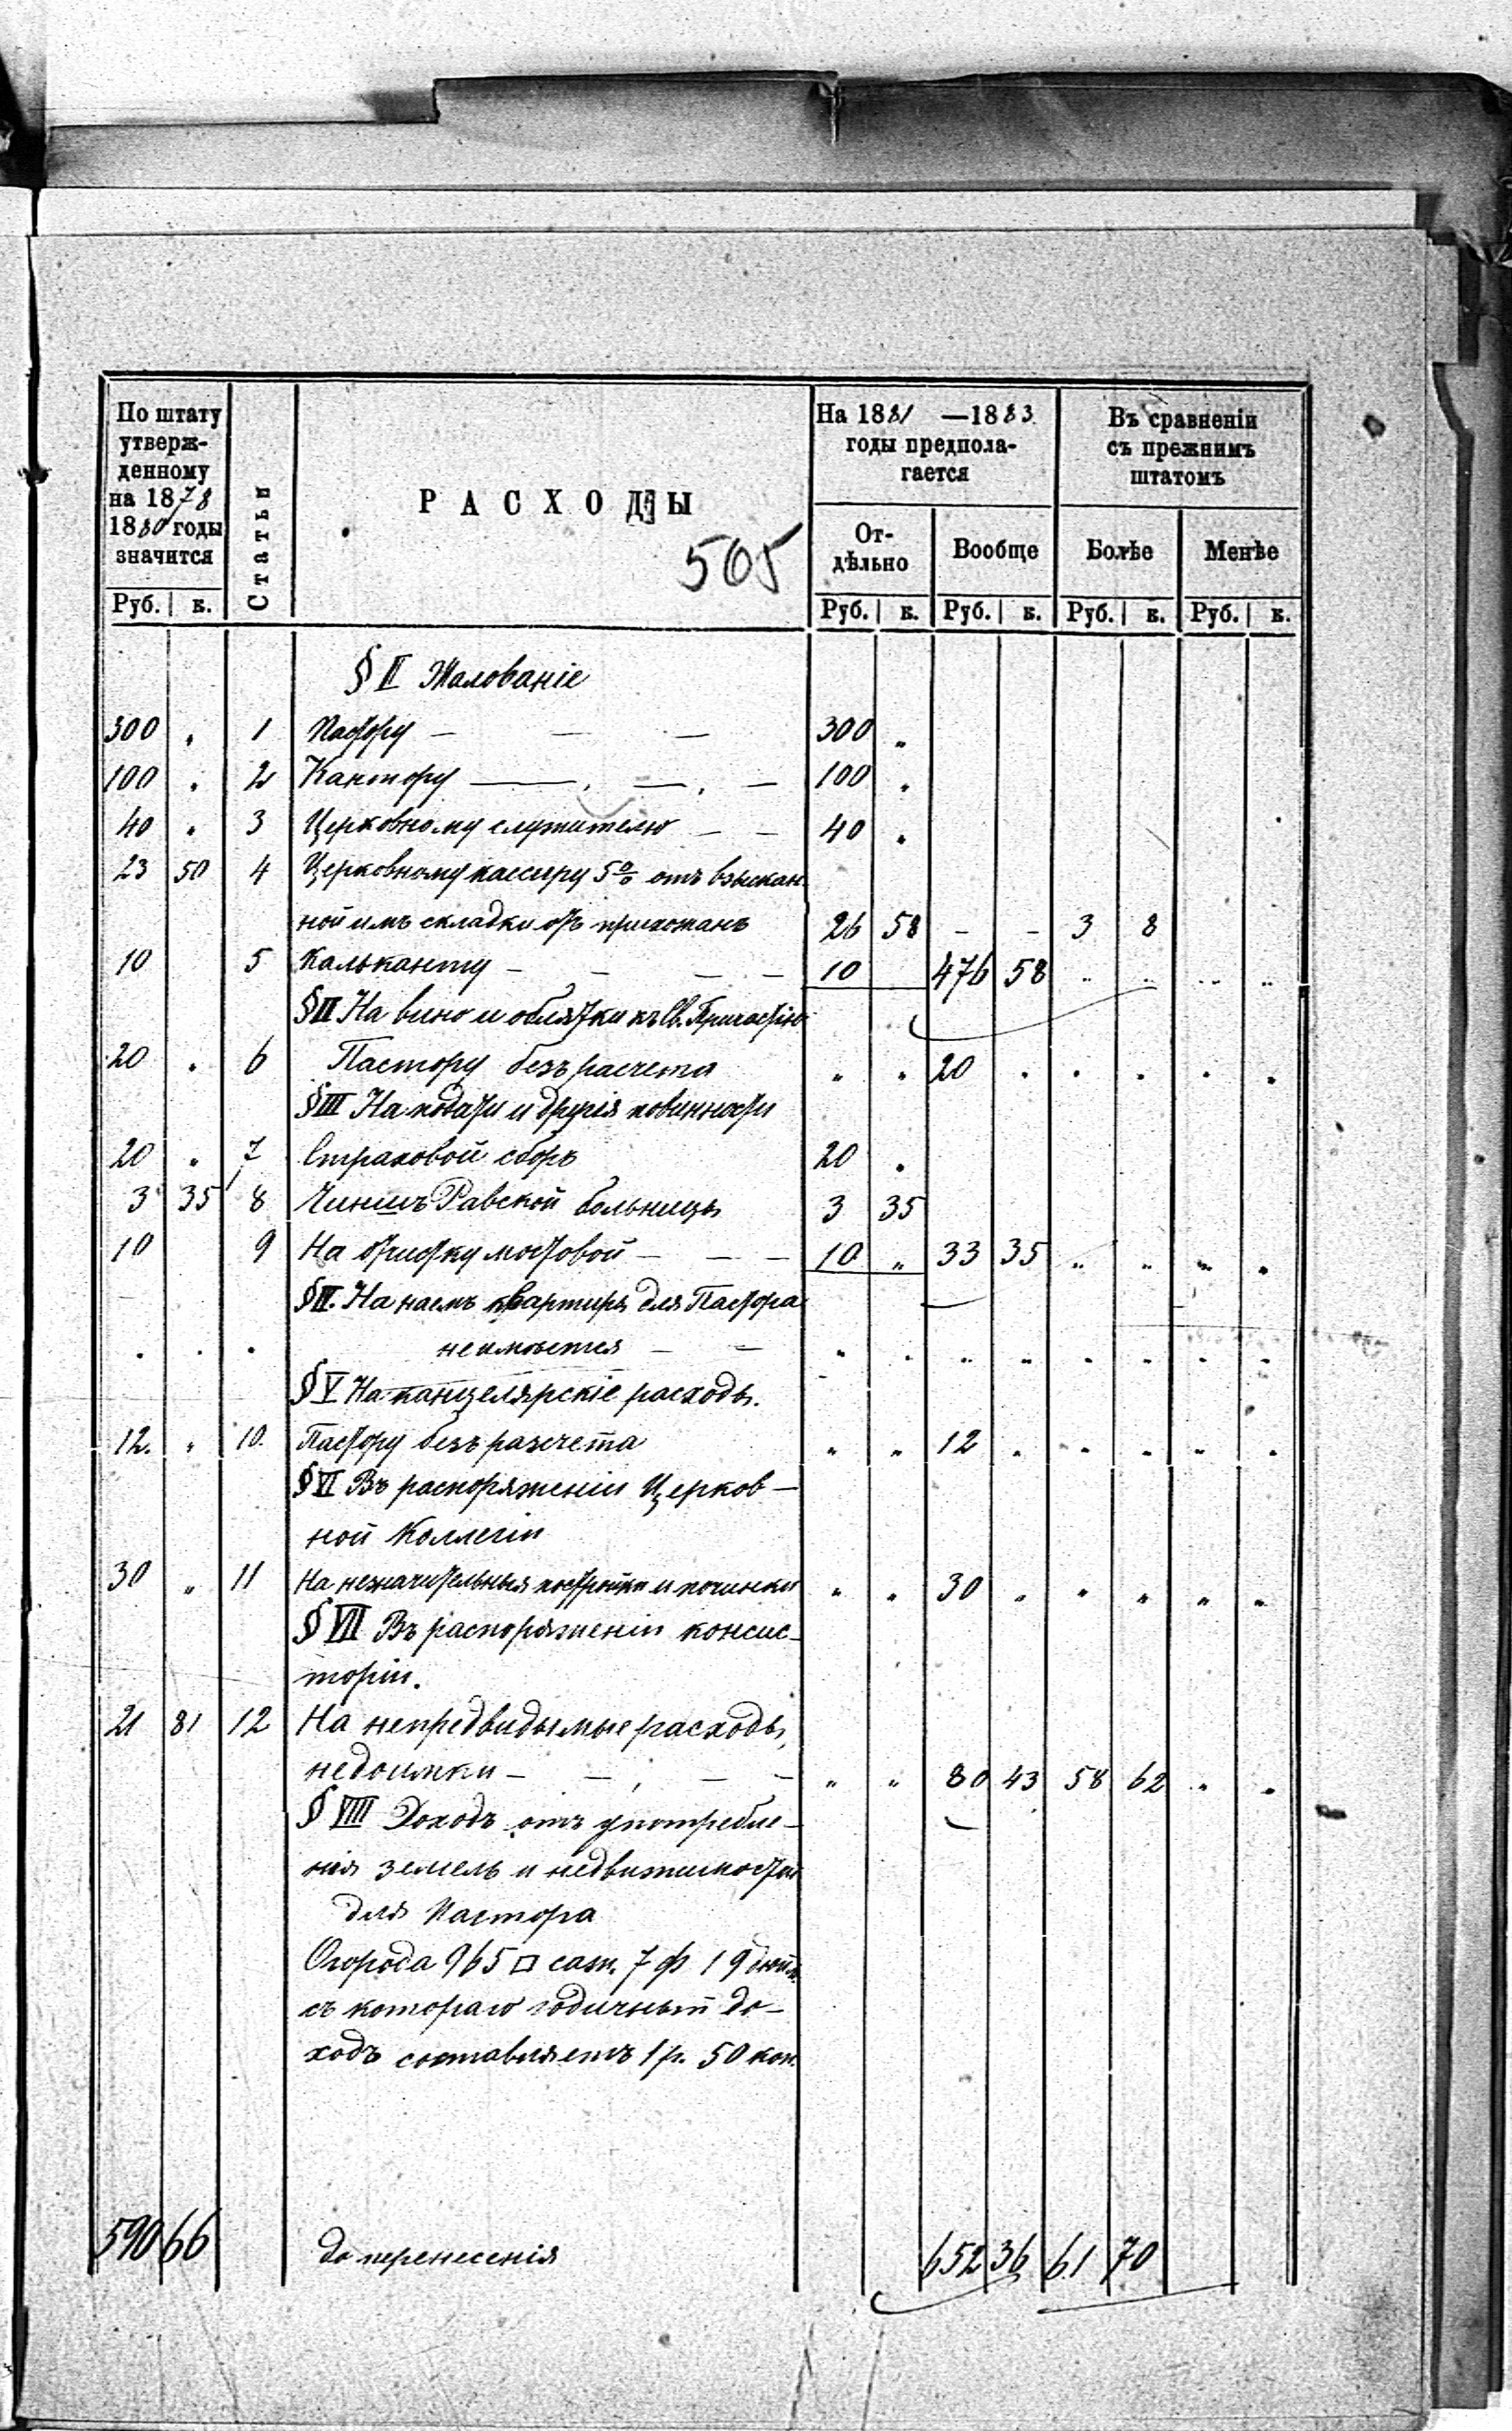 По штату утверж-денному на 1878 1880 годы значится
Статьи
РАСХОДЫ
505
На 1881 —1883 годы предпола-гается
Въ сравненіи съ прежнимъ штатомъ
От-дѣльно Вообще Болѣе Менѣе
Руб. к. Руб. к. Руб. к. Руб. к. Руб. к.
§ II Жалованіе
300 „ 1 Пастору — — — 300 „
100 „ 2 Кантору — — — 100 „
40 „ 3 Церковному служителю — — 40 „
23 50 4 Церковному кассиру 5% отъ взыскан
ной имъ складки отъ прихожанъ 26 58 — — 3 8
10 5 Кальканту — — — — 10 476 58 „ „ „ „
§ II На вино и облятки къ Св. Причастію
20 „ 6 Пастору безъ расчета „ „ 20 „ „ „ „ „
§ III На подати и другія повинности
20 „ 7 Страховой сборъ 20 „
3 35 8 Чиншъ Равской больницы 3 35
10 9 На чистку мостовой — — — 10 „ 33 35 „ „ „ „
§ IV. На наемъ квартиры для Пастора
„ „ „ неимѣется — — „ „ „ „ „ „ „ „
§ V На канцелярскіе расходы.
12. „ 10. Пастору безъ разсчета „ „ 12 „ „ „ „ „
§ VI Въ распоряженіи Церков —
ной Коллегіи
30 „ 11 На незначительныя постройки и починки „ „ 30 „ „ „ „ „
§ VII Въ распоряженіи консис-
торіи.
21 81 12 На непредвидымые расходы,
недоимки — — — — „ „ 80 43 58 62 „ „
§ VIII Доходъ отъ употребле-
нія земель и недвижимостей
для Пастора
Огорода 965 □ саж. 7 ф 19 дюйм.
съ котораго годичный до-
ходъ составляетъ 1 р. 50 коп.
590 66 до перенесенія 652 36 61 70